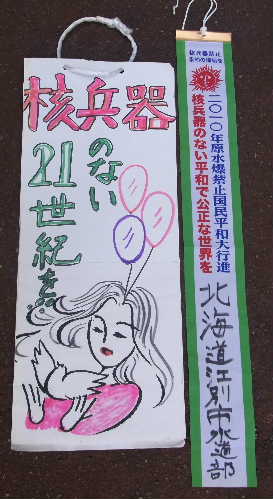 核兵器
のない
21世紀を
二〇一〇年原水爆禁止国民平和大行進
核兵器のない平和で公正な世界を
北海道江別市水道部